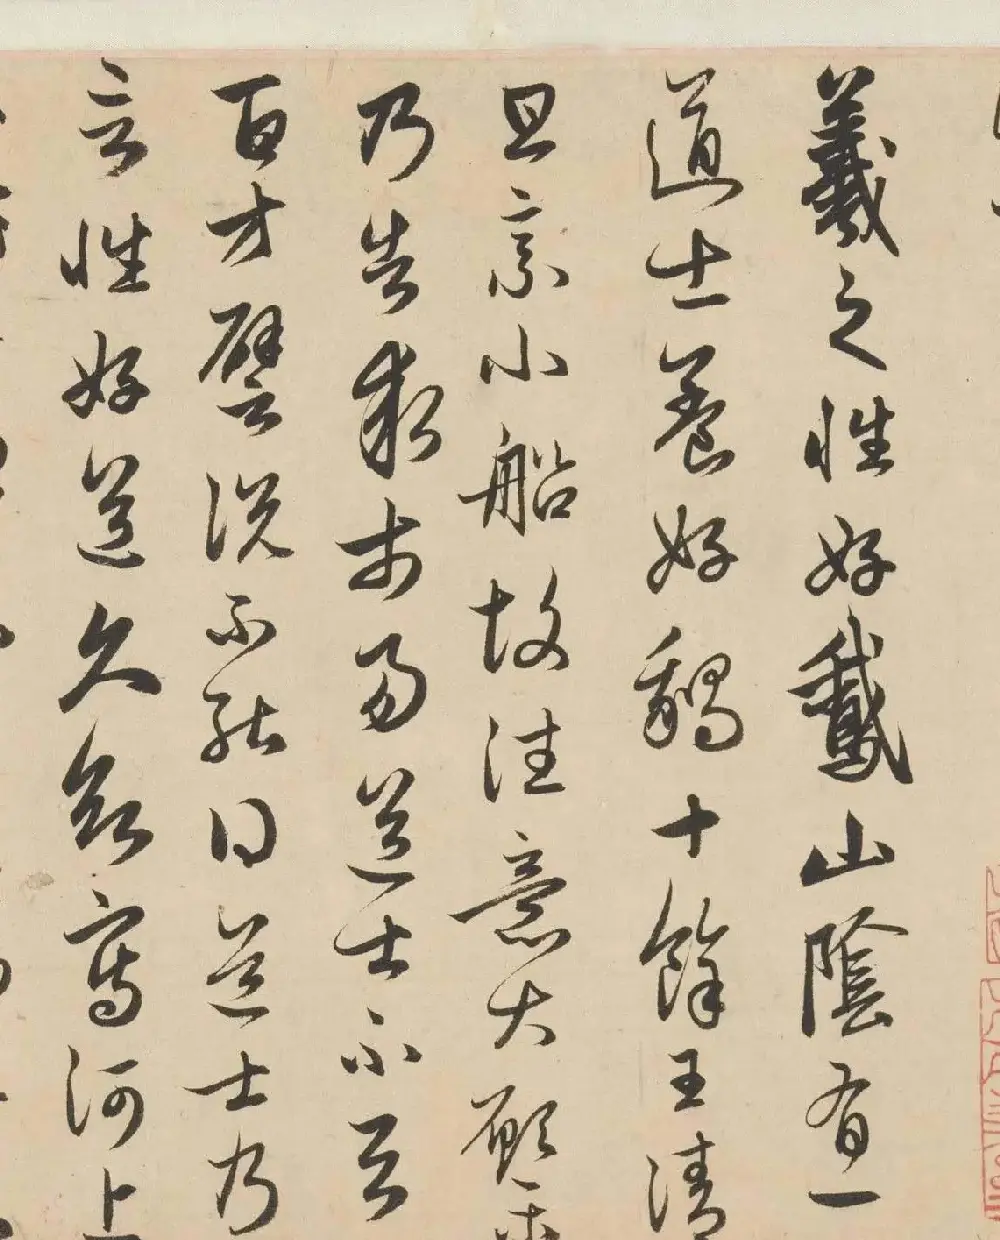 羲之性好鵞山陰有一
道士養好鵝十餘王清
旦乘小船故往意大願樂
乃告求市易道士不与
百方譬説不能得道士乃
言性好道久欲寫河上